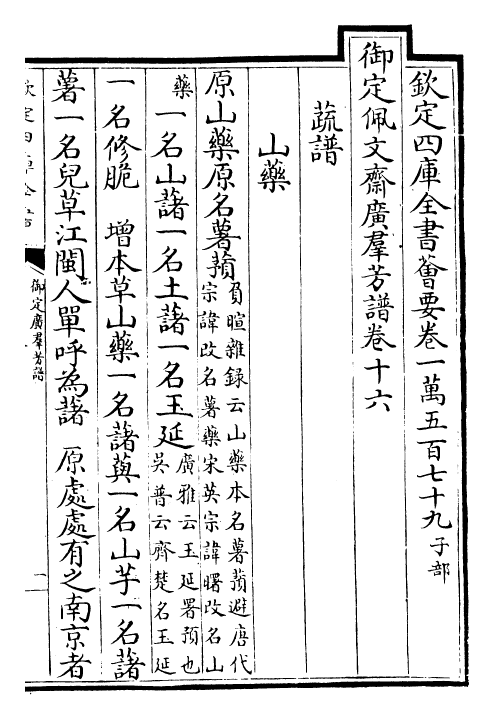 欽定四庫全書薈要卷一萬五百七十九子部
御定佩文齋廣羣芳譜卷十六
蔬譜
山藥
原山藥原名薯蕷負暄雜録云山藥本名薯蕷避唐代宗諱改名薯藥宋英宗諱曙改名山
藥一名山藷一名土藷一名玉延廣雅云玉延署預也吳普云齊楚名玉延
一名修脆 增本草山藥一名藷藇一名山芋一名藷
薯一名兒草江閩人單呼為藷 原處處有之南京者
御定廣羣芳譜
二